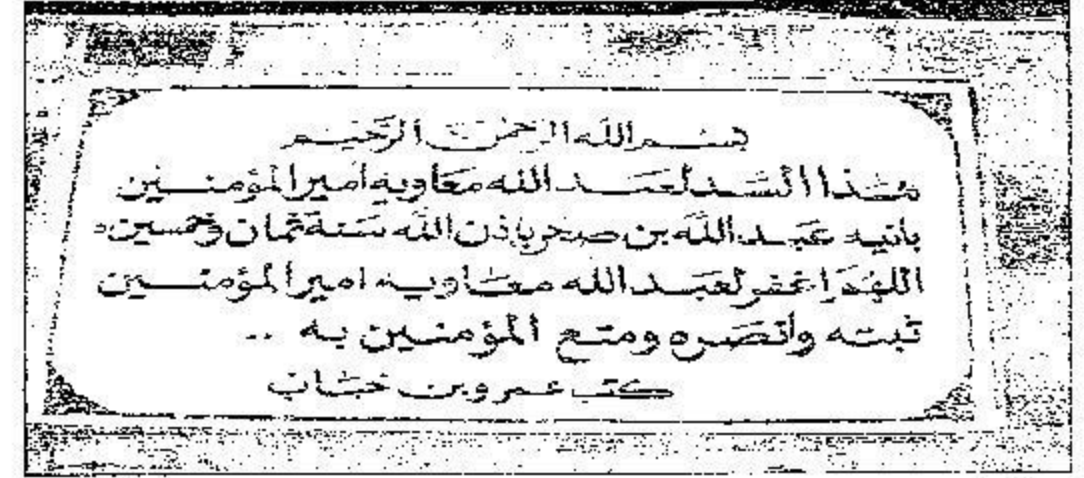 بسم الله الرحمن الرحيم
هذا السد لعبد الله معاويه امير المؤمنين
بانيه عبد الله بن صخر باذن الله سنة ثمان وخمسين
اللهم اغفر لعبد الله معاويه امير المؤمنين
ثبته وانصره ومتع المؤمنين به ..
كتب عمرو بن خباب